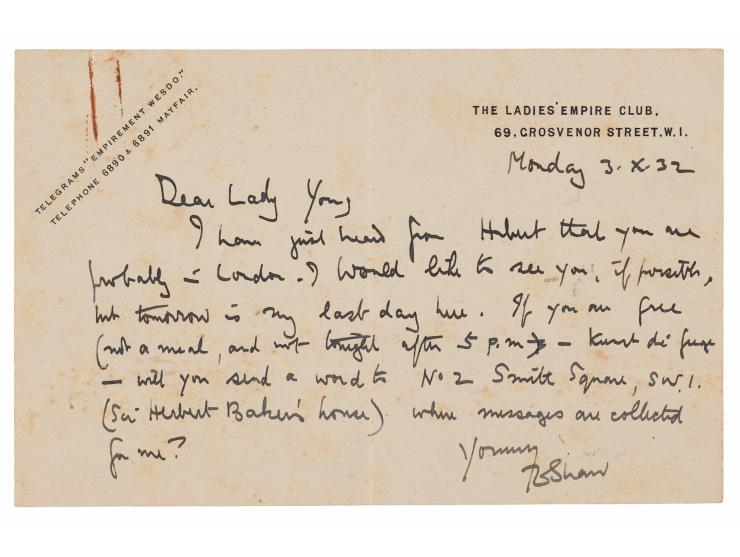 TELEGRAMS "EMPIREMENT WESDO."
TELEPHONE 6890 & 6891 MAYFAIR.
THE LADIES' EMPIRE CLUB,
69, GROSVENOR STREET, W.1.
Monday 3.X.32
Dear Lady Young
I have just heard from Hubert that you are
probably in London. I would like to see you, if possible,
but tomorrow is my last day here. If you are free
(not a meal, and not tonight after 5 p.m.) —
— will you send a word to No 2 Smith Square, S.W.1.
(Sir Herbert Baker's house) where messages are collected
for me?
Yours
TEShaw